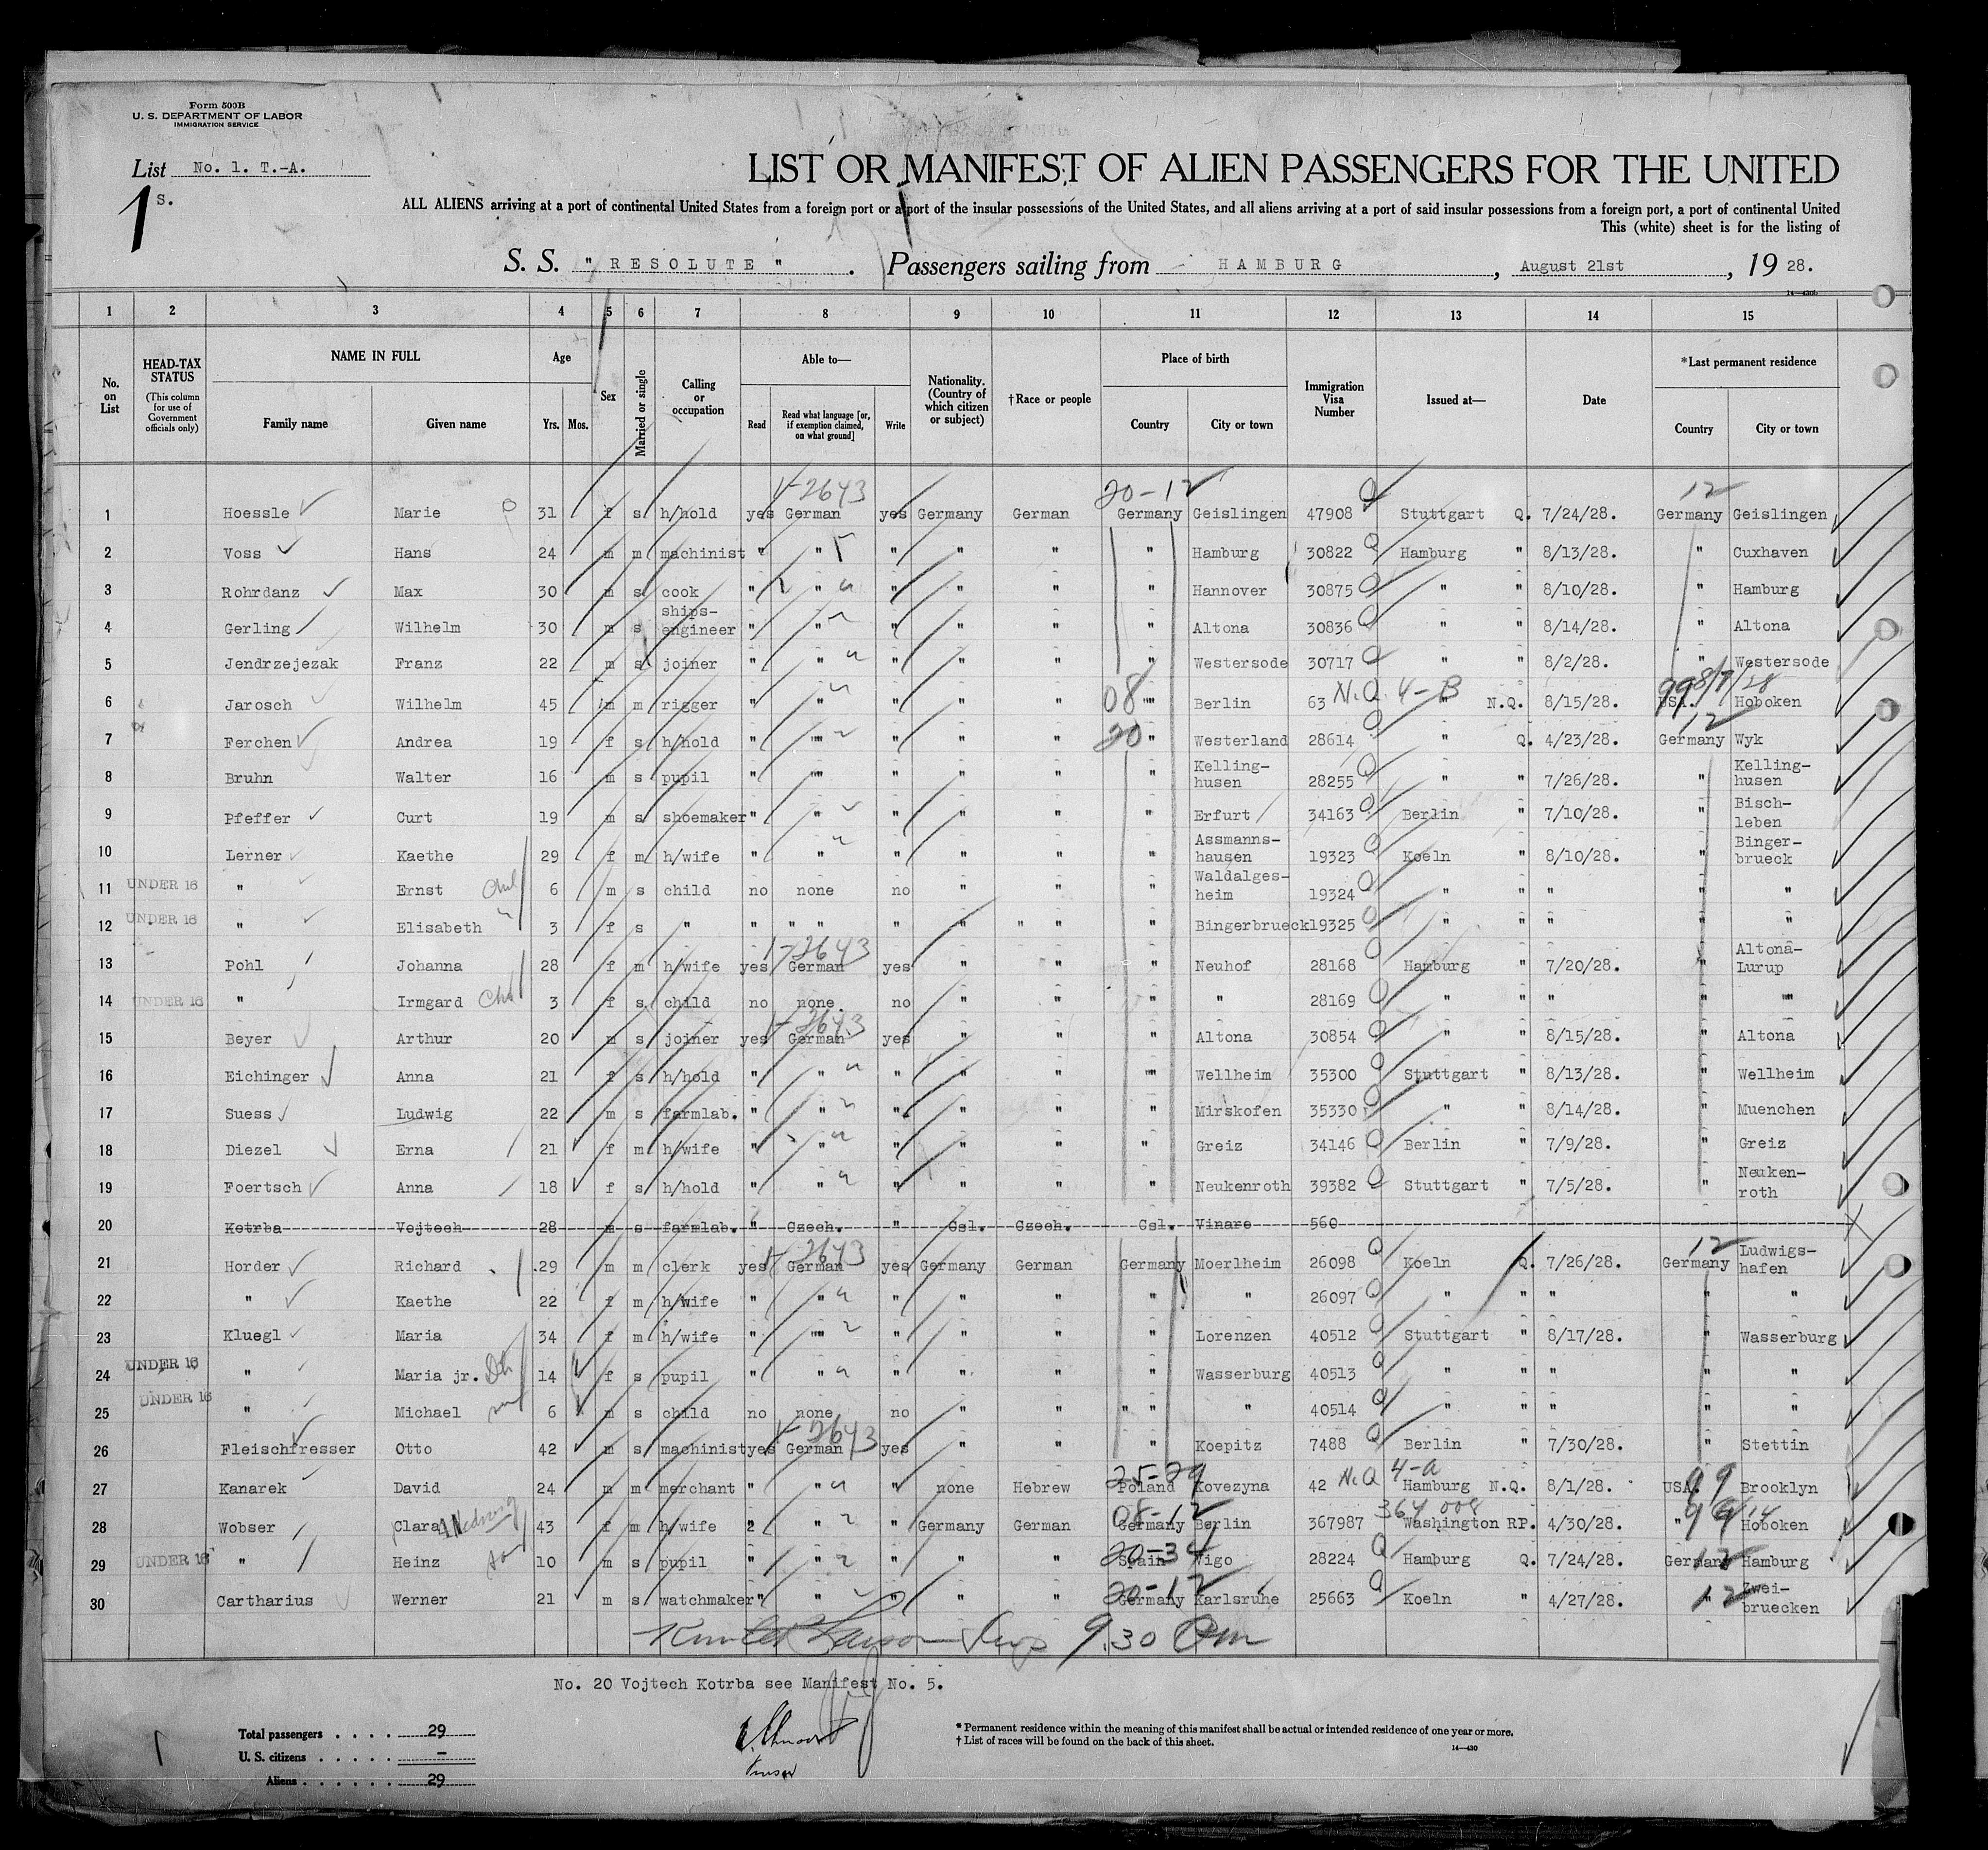 Form 500B
U. S. DEPARTMENT OF LABOR
IMMIGRATION SERVICE
List No. 1. T.-A.
1 S.
LIST OR MANIFEST OF ALIEN PASSENGERS FOR THE UNITED
ALL ALIENS arriving at a port of continental United States from a foreign port or a port of the insular possessions of the United States, and all aliens arriving at a port of said insular possessions from a foreign port, a port of continental United
This (white) sheet is for the listing of
S. S. " RESOLUTE " . Passengers sailing from HAMBURG , August 21st , 19 28.
14—430b
1 2 3 4 5 6 7 8 9 10 11 12 13 14 15
No. on List
HEAD-TAX STATUS (This column for use of Government officials only)
NAME IN FULL Family name Given name
Age Yrs. Mos.
Sex
Married or single
Calling or occupation
Able to— Read Read what language [or, if exemption claimed, on what ground] Write
Nationality. (Country of which citizen or subject)
†Race or people
Place of birth Country City or town
Immigration Visa Number
Issued at—
Date
*Last permanent residence Country City or town
1-2643 20-12 12
1 Hoessle Marie 31 f s h/hold yes German yes Germany German Germany Geislingen 47908 Q Stuttgart Q. 7/24/28. Germany Geislingen
2 Voss Hans 24 m m machinist " " " " " " Hamburg 30822 Q Hamburg " 8/13/28. " Cuxhaven
3 Rohrdanz Max 30 m s cook " " " " " " Hannover 30875 Q " " 8/10/28. " Hamburg
4 Gerling Wilhelm 30 m s ships-engineer " " " " " " Altona 30836 Q " " 8/14/28. " Altona
5 Jendrzejezak Franz 22 m s joiner " " " " " " Westersode 30717 Q " " 8/2/28. " Westersode
6 Jarosch Wilhelm 45 m m rigger " " " " " 08 " Berlin 63 N.Q. 4-B " N.Q. 8/15/28. 99 8/7/28 USA. Hoboken
7 Ferchen Andrea 19 f s h/hold " " " " " 20 " Westerland 28614 Q " Q. 4/23/28. 12 Germany Wyk
8 Bruhn Walter 16 m s pupil " " " " " " Kelling-husen 28255 Q " " 7/26/28. " Kelling-husen
9 Pfeffer Curt 19 m s shoemaker " " " " " " Erfurt 34163 Q Berlin " 7/10/28. " Bisch-leben
10 Lerner Kaethe 29 f m h/wife " " " " " " Assmanns-hausen 19323 Q Koeln " 8/10/28. " Binger-brueck
11 UNDER 16 " Ernst 6 m s child no none no " " " Waldalges-heim 19324 Q " " " " "
12 UNDER 16 " Elisabeth 3 f s " " " " " " " " " Bingerbrueck 19325 Q " " " " "
13 Pohl Johanna 28 f m h/wife yes 1-2643 German yes " " " Neuhof 28168 Q Hamburg " 7/20/28. " Altona-Lurup
14 UNDER 16 " Irmgard 3 f s child no none. no " " " " 28169 Q " " " " "
15 Beyer Arthur 20 m s joiner yes 1-2643 German yes " " " Altona 30854 Q " " 8/15/28. " Altona
16 Eichinger Anna 21 f s h/hold " " " " " " Wellheim 35300 Q Stuttgart " 8/13/28. " Wellheim
17 Suess Ludwig 22 m s farmlab. " " " " " " Mirskofen 35330 Q " " 8/14/28. " Muenchen
18 Diezel Erna 21 f m h/wife " " " " " " Greiz 34146 Q Berlin " 7/9/28. " Greiz
19 Foertsch Anna 18 f s h/hold " " " " " " Neukenroth 39382 Q Stuttgart " 7/5/28. " Neuken-roth
20 Kotrba Vojtech 28 m s farmlab. " Czech. " Csl. Czech. Csl. Vinare 560
21 Horder Richard 29 m m clerk yes 1-2643 German yes Germany German Germany Moerlheim 26098 Q Koeln Q. 7/26/28. 12 Germany Ludwigs-hafen
22 " Kaethe 22 f m h/wife " " " " " " " 26097 Q " " " " "
23 Kluegl Maria 34 f m h/wife " " " " " " Lorenzen 40512 Q Stuttgart " 8/17/28. " Wasserburg
24 UNDER 16 " Maria jr. 14 f s pupil " " " " " " Wasserburg 40513 Q " " " " "
25 UNDER 16 " Michael 6 m s child no none no " " " " " 40514 Q " " " " "
26 Fleischfresser Otto 42 m s machinist yes 1-2643 German yes " " " Koepitz 7488 Q Berlin " 7/30/28. " Stettin
27 Kanarek David 24 m m merchant " " " none Hebrew 25-29 Poland Kovezyna 42 N.Q 4-a Hamburg N.Q. 8/1/28. 99 USA. Brooklyn
28 Wobser Clara 43 f m h/wife 2 " " Germany German 08-12 Germany Berlin 367987 Washington RP. 4/30/28. " 99 Hoboken
29 UNDER 16 " Heinz 10 m s pupil " " " " " 20-34 Spain Vigo 28224 Q Hamburg Q. 7/24/28. 12 Germany Hamburg
30 Cartharius Werner 21 m s watchmaker " " " " " 20-12 Germany Karlsruhe 25663 Q Koeln " 4/27/28. 12 " Zwei-bruecken
9.30
No. 20 Vojtech Kotrba see Manifest No. 5.
Total passengers . . . . . 29
U. S. citizens . . . . . —
Aliens . . . . . . 29
* Permanent residence within the meaning of this manifest shall be actual or intended residence of one year or more.
† List of races will be found on the back of this sheet.
14—430